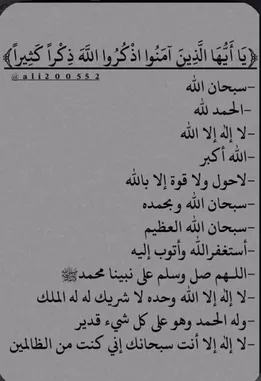 ﴿يَا أَيُّهَا الَّذِينَ آمَنُوا اذْكُرُوا اللَّهَ ذِكْراً كَثِيراً﴾
@ali200552
-سبحان الله
-الحمد لله
-لا إله إلا الله
-الله أكبر
-لاحول ولا قوة إلا بالله
-سبحان الله وبحمده
-سبحان الله العظيم
-أستغفرالله وأتوب إليه
-اللهم صل وسلم على نبينا محمدﷺ
-لا إله إلا الله وحده لا شريك له له الملك
-وله الحمد وهو على كل شيء قدير
-لا إله إلا أنت سبحانك إني كنت من الظالمين